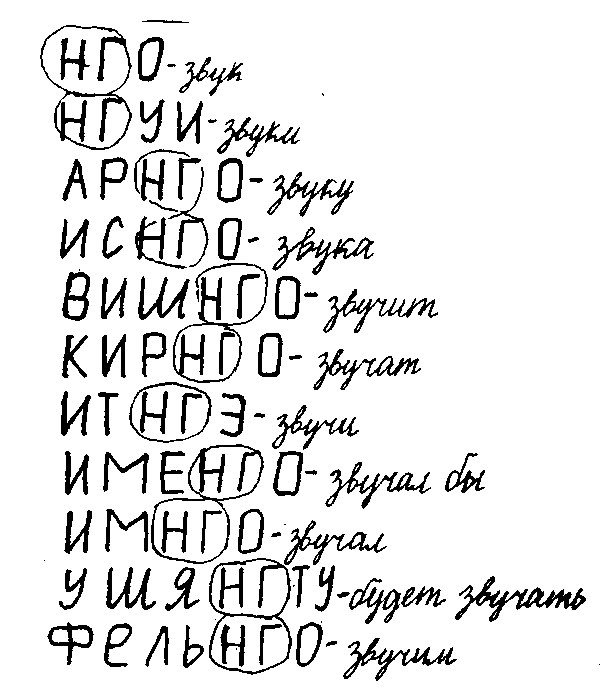 НГО - звук
НГУИ - звуки
АРНГО - звуку
ИСНГО - звука
ВИШНГО - звучит
КИРНГО - звучат
ИТНГЭ - звучи
ИМЕНГО - звучал бы
ИМНГО - звучал
УШЯНГТУ - будет звучать
ФЕЛЬНГО - звучим